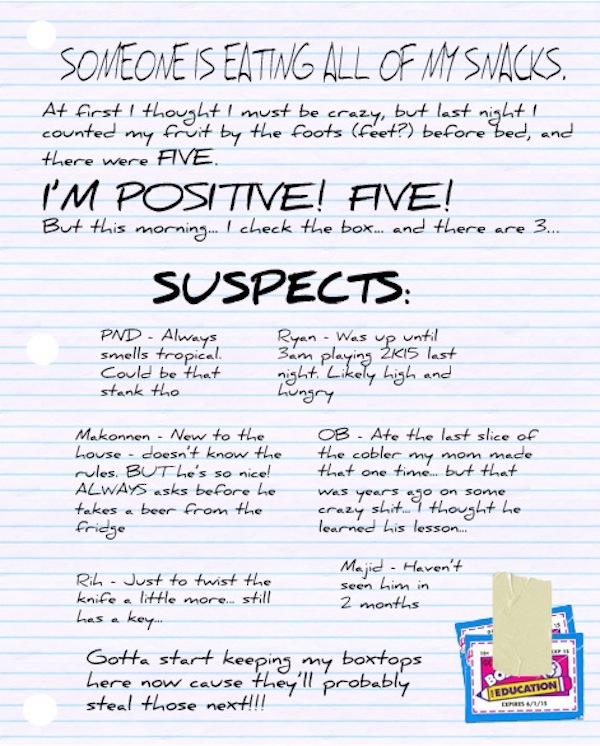 SOMEONE IS EATING ALL OF MY SNACKS.
At first I thought I must be crazy, but last night I
counted my fruit by the foots (feet?) before bed, and
there were FIVE.
I'M POSITIVE! FIVE!
But this morning... I check the box... and there are 3...
SUSPECTS:
PND - Always
smells tropical.
Could be that
stank tho
Ryan - Was up until
3am playing 2K15 last
night. Likely high and
hungry
Makonnen - New to the
house - doesn't know the
rules. BUT he's so nice!
ALWAYS asks before he
takes a beer from the
fridge
OB - Ate the last slice of
the cobler my mom made
that one time... but that
was years ago on some
crazy shit... I thought he
learned his lesson...
Rih - Just to twist the
knife a little more... still
has a key...
Majid - Haven't
seen him in
2 months
Gotta start keeping my boxtops
here now cause they'll probably
steal those next!!!!
EXP 15
EDUCATION
EXPIRES 6/1/15